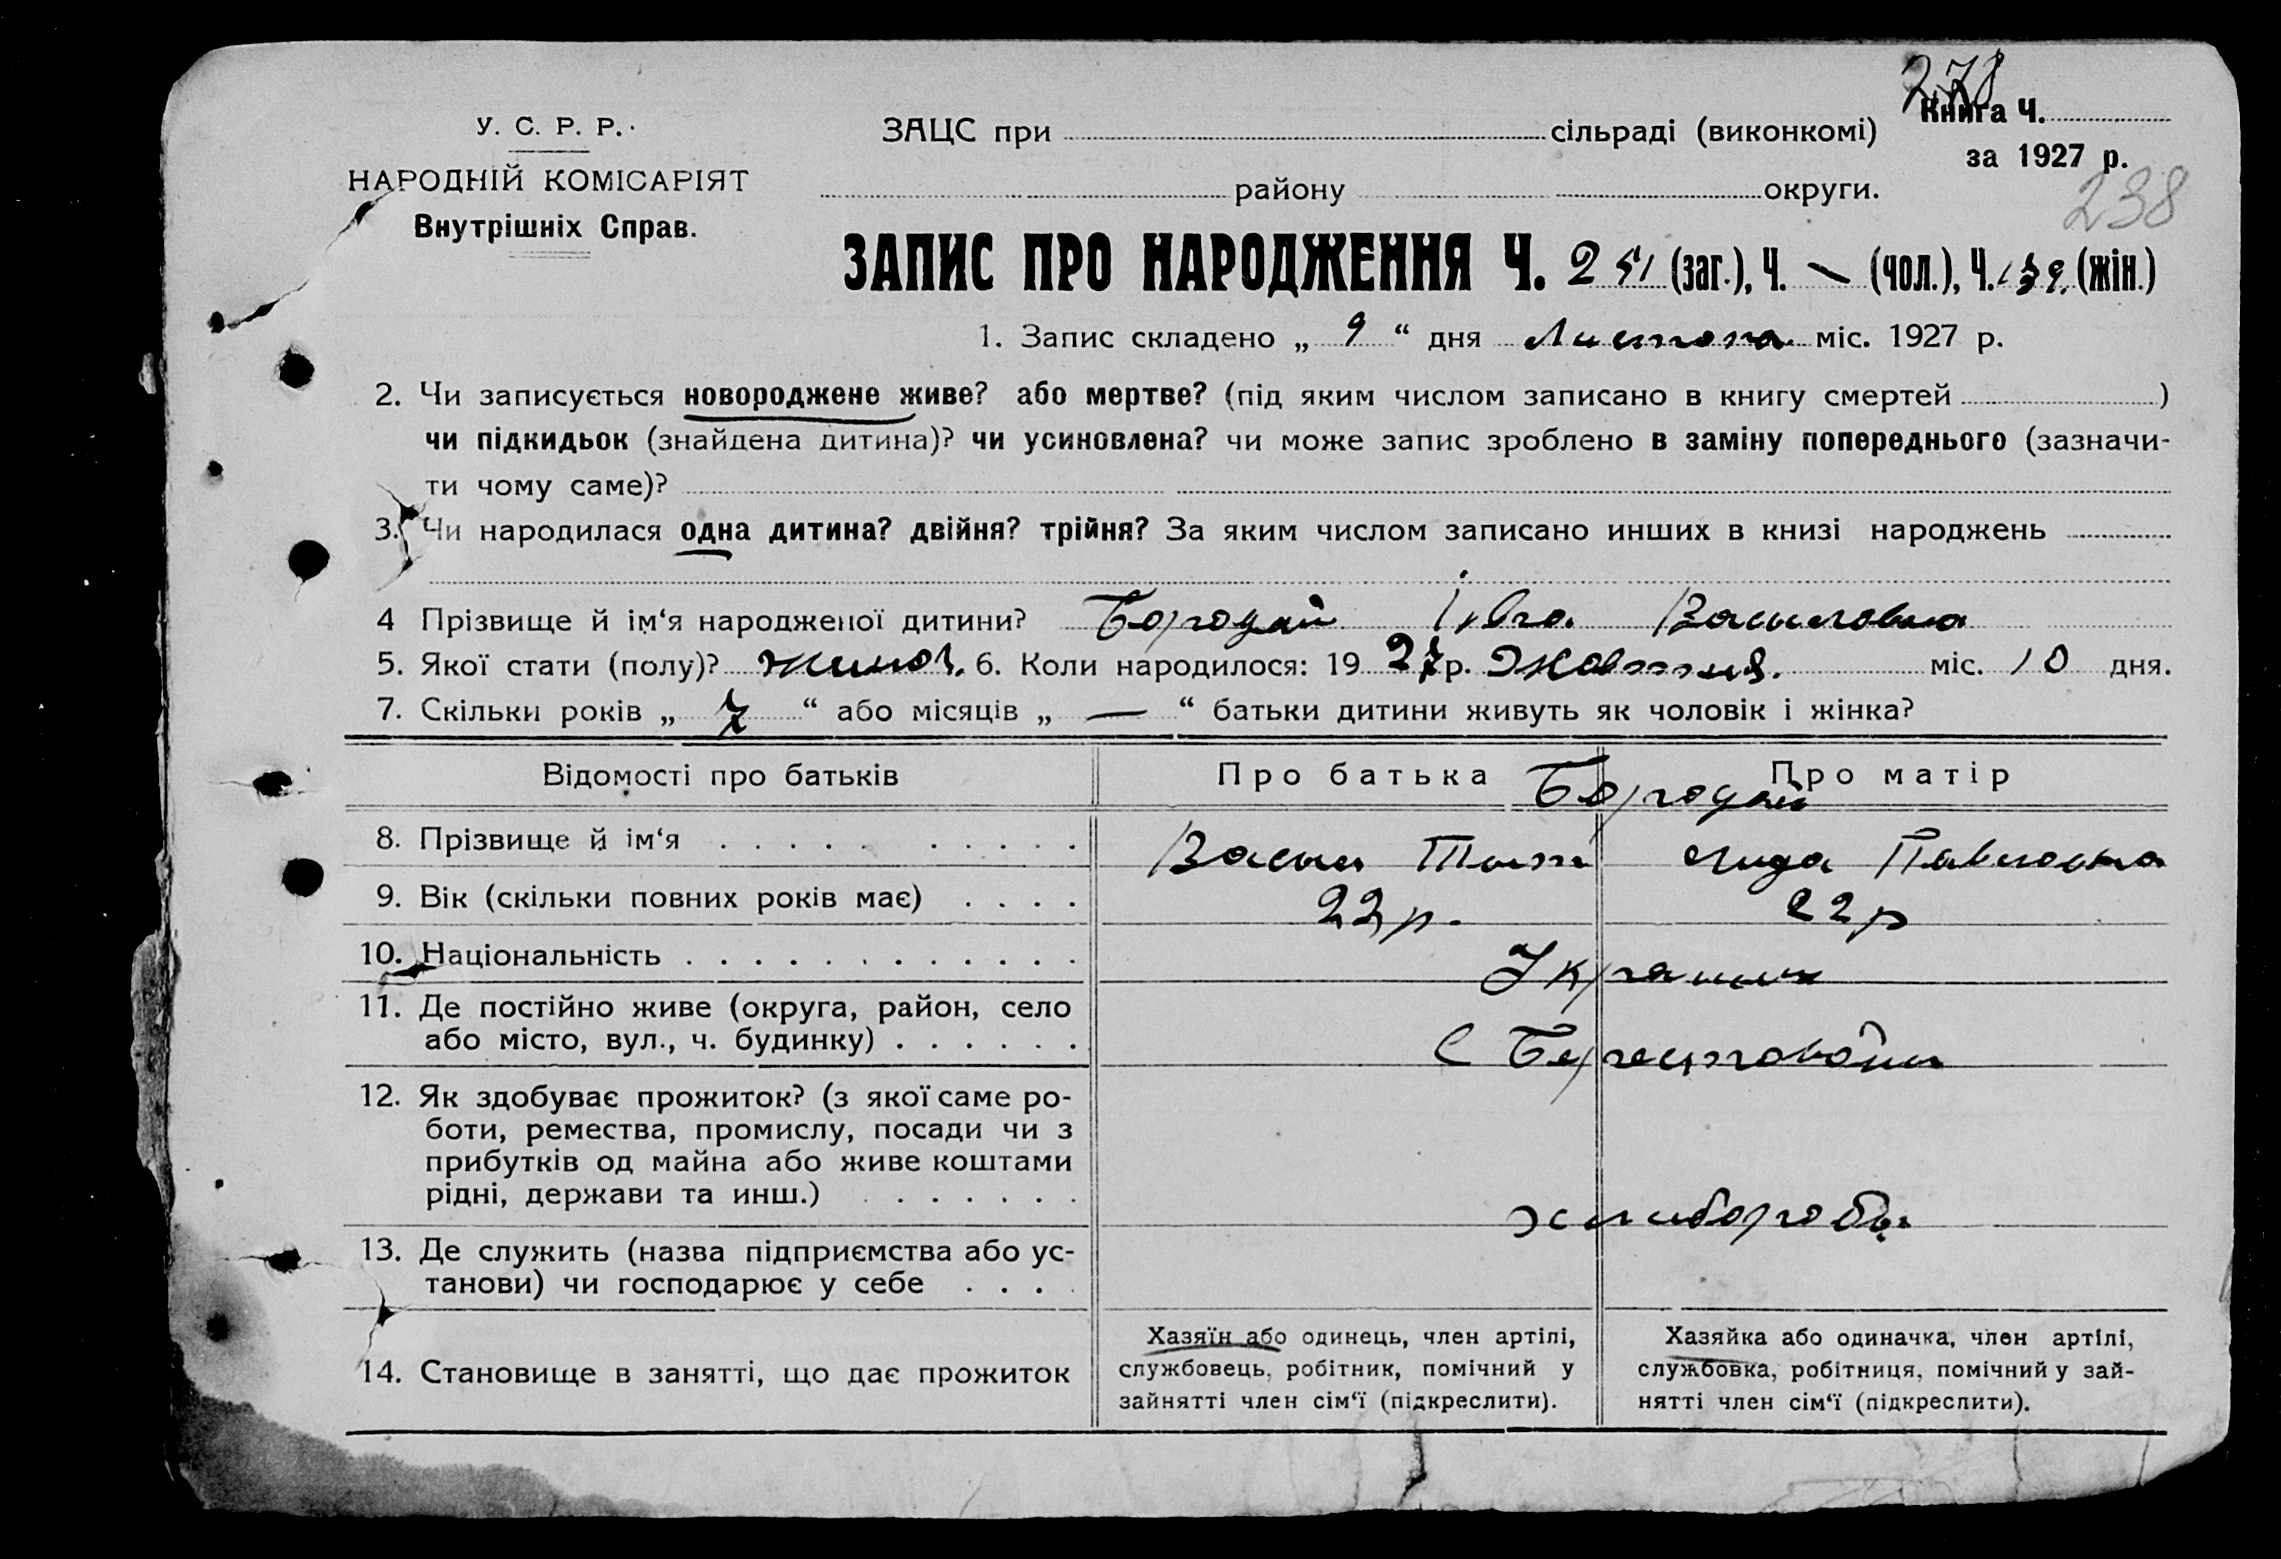 278
У. С. Р. Р.
ЗАЦС при сільраді (виконкомі)
Книга Ч.
за 1927 р.
НАРОДНІЙ КОМІСАРІЯТ
району округи.
238
Внутрішніх Справ.
ЗАПИС ПРО НАРОДЖЕННЯ Ч. 251 (заг.), Ч. — (чол.), Ч. 139 (жін.)
1. Запис складено „ 9 “ дня Листопа міс. 1927 р.
2. Чи записується новороджене живе? або мертве? (під яким числом записано в книгу смертей )
чи підкидьок (знайдена дитина)? чи усиновлена? чи може запис зроблено в заміну попереднього (зазначи-
ти чому саме)?
3. Чи народилася одна дитина? двійня? трійня? За яким числом записано инших в книзі народжень
4 Прізвище й ім‘я народженої дитини? Бородай Івга Васыловна
5. Якої стати (полу)? 6. Коли народилося: 1927 р. Жовтня міс. 10 дня.
7. Скільки років „ 7 “ або місяців „ — “ батьки дитини живуть як чоловік і жінка?
Відомості про батьків
Про батька
Про матір
Бородай
8. Прізвище й ім‘я
Васыл
Лида Павловна
9. Вік (скільки повних років має)
22 р.
22 р
10. Національність
11. Де постійно живе (округа, район, село
або місто, вул., ч. будинку)
с
12. Як здобуває прожиток? (з якої саме ро-
боти, ремества, промислу, посади чи з
прибутків од майна або живе коштами
рідні, держави та инш.)
хлиборобы
13. Де служить (назва підприємства або ус-
танови) чи господарює у себе
14. Становище в занятті, що дає прожиток
Хазяїн або одинець, член артілі,
службовець, робітник, помічний у
зайнятті член сім‘ї (підкреслити).
Хазяйка або одиначка, член артілі,
службовка, робітниця, помічний у зай-
нятті член сім‘ї (підкреслити).